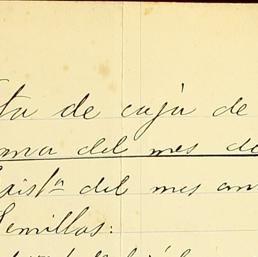 ta de caja de
del mes de
Exist.ª del mes an
Semillas: